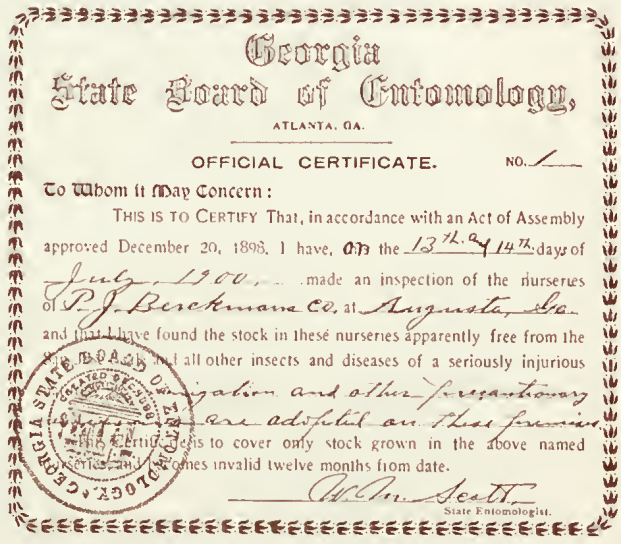 Georgia
State Board of Entomology,
ATLANTA, GA.
OFFICIAL CERTIFICATE. NO. 1
To Whom it May Concern:
THIS IS TO CERTIFY That, in accordance with an Act of Assembly
approved December 20, 1898, I have, on the 13th. & 14th. days of
July, 1900, made an inspection of the nurseries
of P. J. Berckmans Co. at Augusta, Ga.
and that I have found the stock in these nurseries apparently free from the
and all other insects and diseases of a seriously injurious
and other precautionary
are adopted on these premises.
This Certificate is to cover only stock grown in the above named
nurseries and becomes invalid twelve months from date.
W. M. Scott
State Entomologist.
GEORGIA STATE BOARD OF ENTOMOLOGY